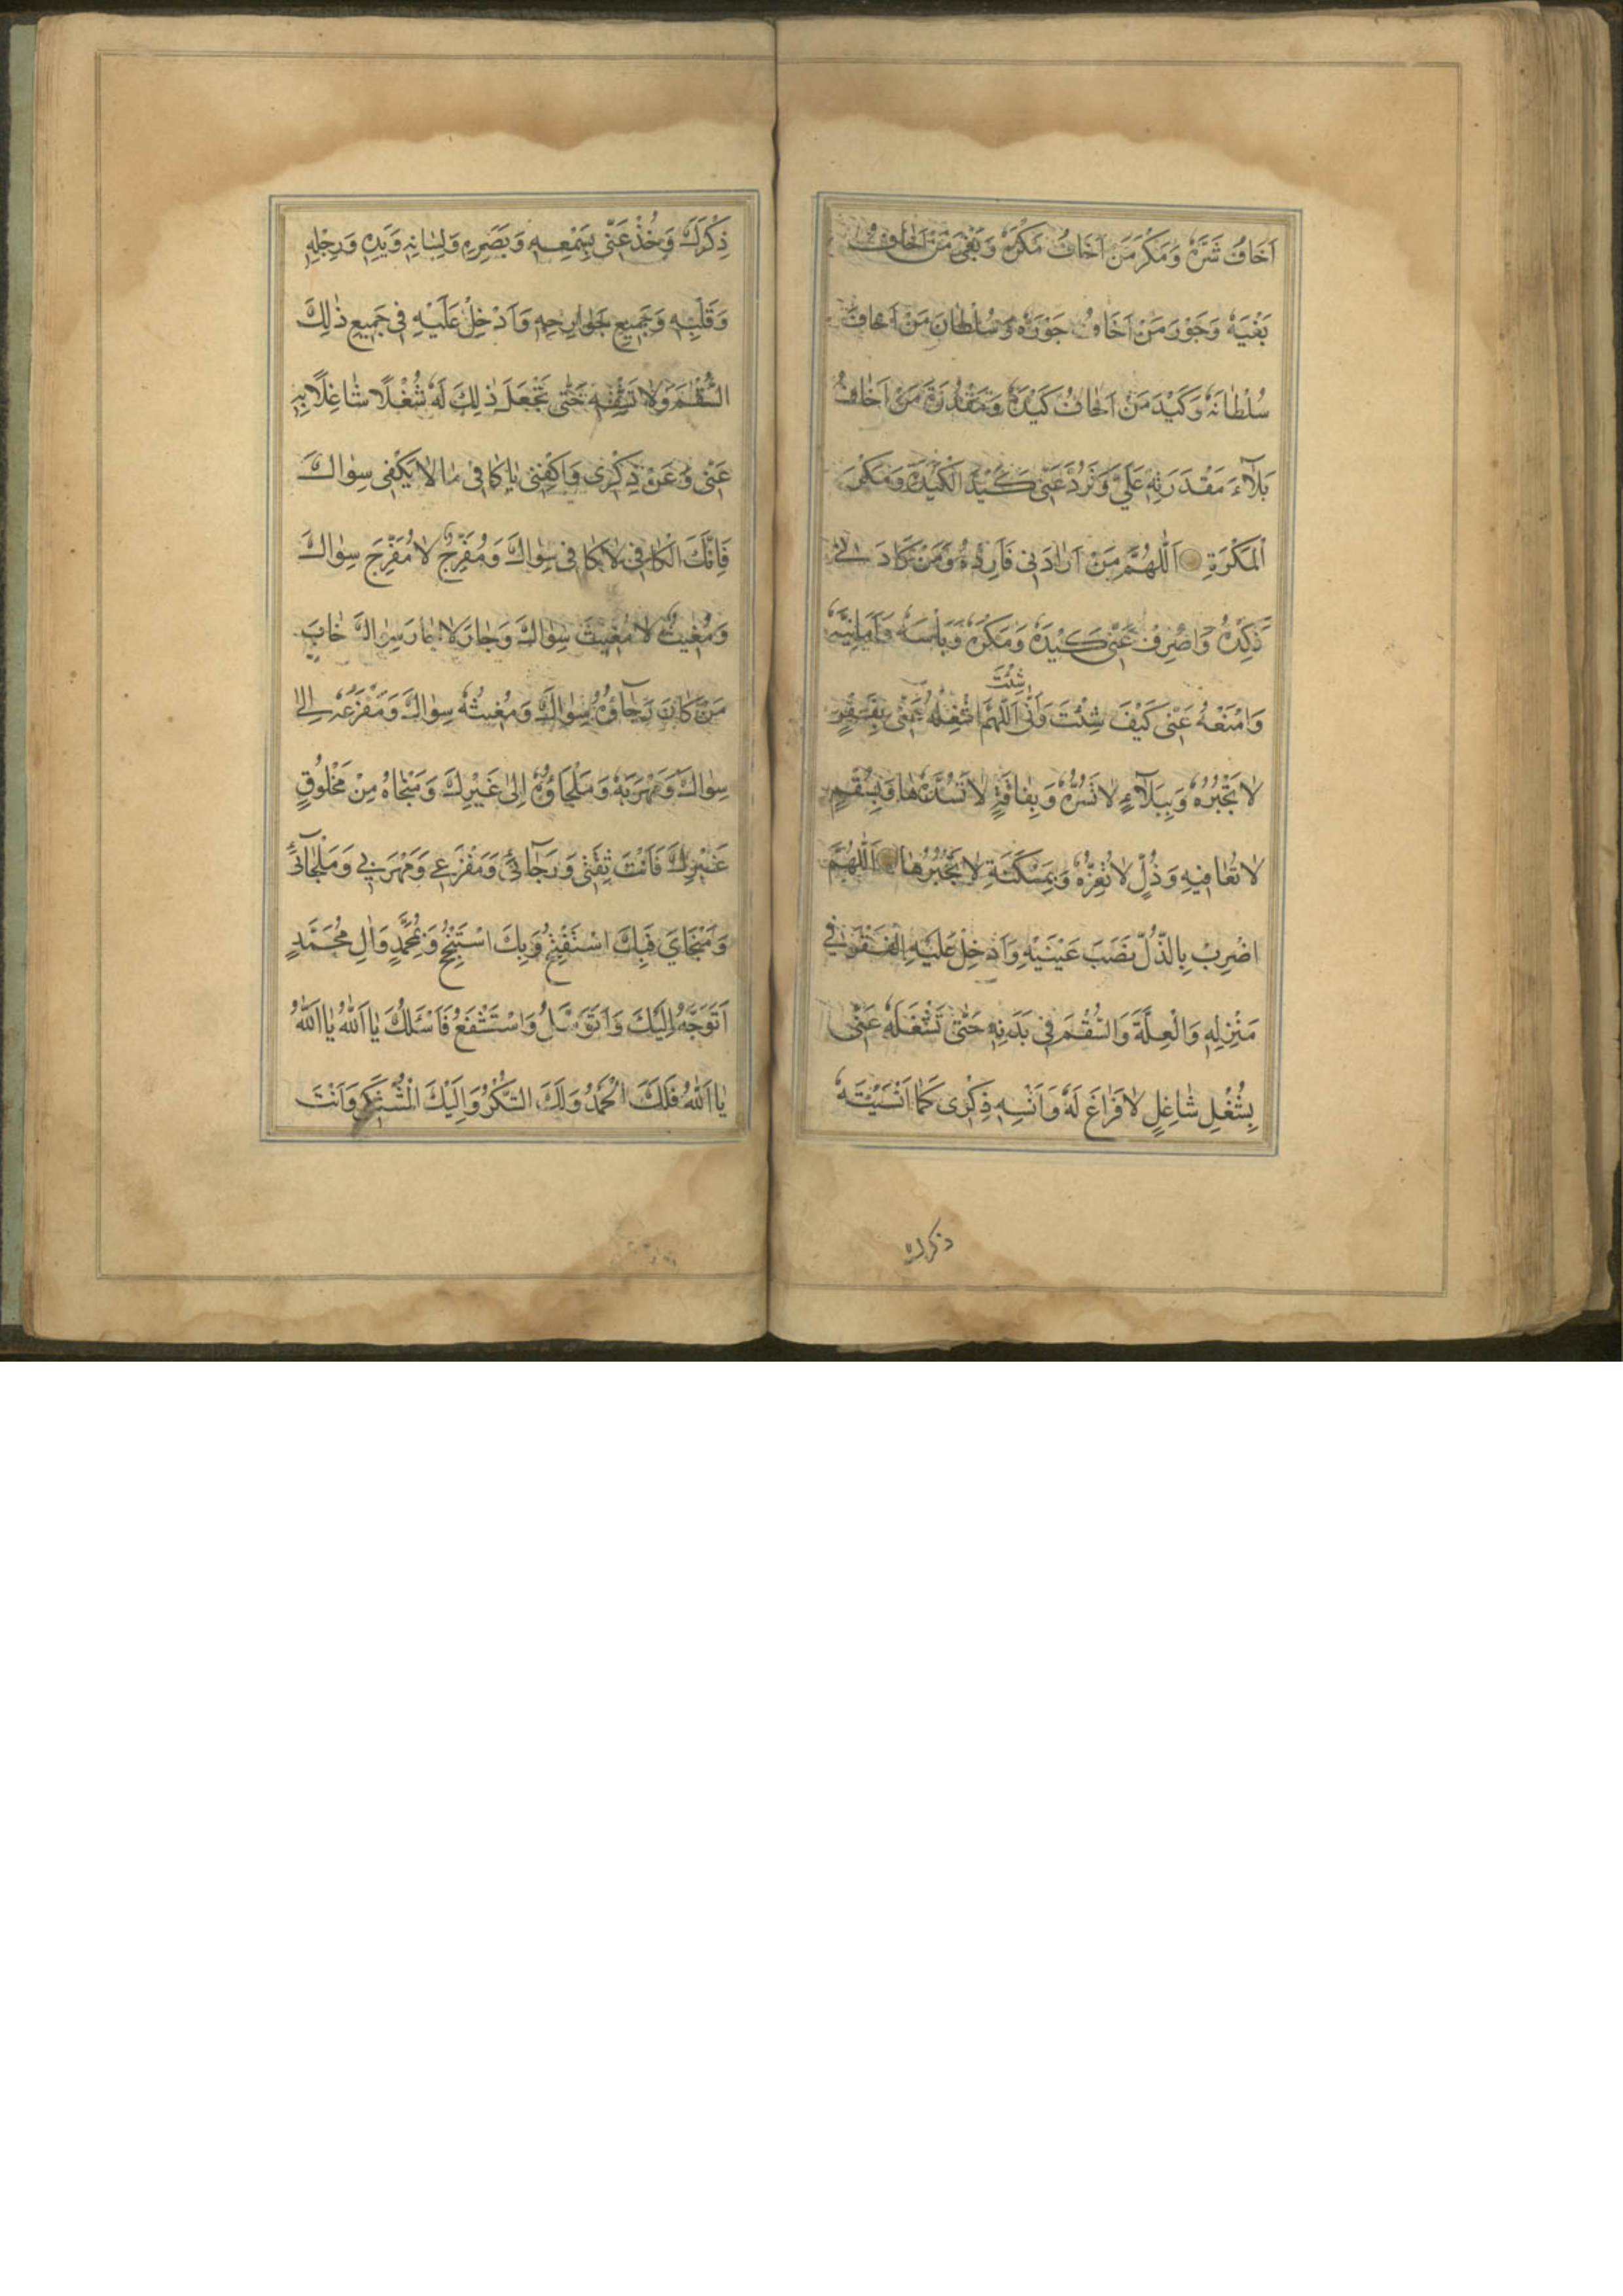 اَخَافُ شَرَّهُ وَمَكْرَ مَنْ اَخَافُ مَكْرَهُ وَبَغْيَ مَنْ اَخَافُ
بَغْيَهُ وَجَوْرَ مَنْ اَخَافُ جَوْرَهُ وَسُلْطَانَ مَنْ اَخَافُ
سُلْطَانَهُ وَكَيْدَ مَنْ اَخَافُ كَيْدَهُ وَمَقْدُرَةَ مَنْ اَخَافُ
بَلَآءَ مَقْدَرَتِهِ عَلَيَّ وَتَرُدَّ عَنّى كَيْدَ الْكَيَدَةِ وَمَكْرَ
الْمَكَرَةِ اَللّٰهُمَّ مَنْ اَرَادَنى فَاَرِدْهُ وَمَنْ كَادَنى
فَكِدْهُ وَاصْرِفْ عَنّى كَيْدَهُ وَمَكْرَهُ وَبَأْسَهُ وَاَمَانِيَّهُ
وَامْنَعْهُ عَنّى كَيْفَ شِئْتَ وَاَنّٰى شِئْتَ اَللّٰهُمَّ اشْغَلْهُ عَنّى بِفَقْرٍ
لَا تَجْبُرُهُ وَبِبَلَآءٍ لَا تَسْتُرُهُ وَبِفَاقَةٍ لَا تَسُدُّهَا وَبِسُقْمٍ
لَا تُعَافِيهِ وَذُلٍّ لَا تُعِزُّهُ وَبِمَسْكَنَةٍ لَا تَجْبُرُهَا اَللّٰهُمَّ
اضْرِبْ بِالذُّلِّ نَصْبَ عَيْنَيْهِ وَاَدْخِلْ عَلَيْهِ الْفَقْرَ فى
مَنْزِلِهِ وَالْعِلَّةَ وَالسُّقْمَ فى بَدَنِهِ حَتّٰى تَشْغَلَهُ عَنّى
بِشُغْلٍ شَاغِلٍ لَا فَرَاغَ لَهُ وَاَنْسِهِ ذِكْرى كَمَا اَنْسَيْتَهُ
ذكرك
ذِكْرَكَ وَخُذْ عَنّى بِسَمْعِهِ وَبَصَرِهِ وَلِسَانِهِ وَيَدِهِ وَرِجْلِهِ
وَقَلْبِهِ وَجَمِيعِ جَوَارِحِهِ وَاَدْخِلْ عَلَيْهِ فى جَمِيعِ ذٰلِكَ
السُّقْمَ وَلَا تَشْفِهِ حَتّٰى تَجْعَلَ ذٰلِكَ لَهُ شُغْلًا شَاغِلًا بِهِ
عَنّى وَعَنْ ذِكْرى وَاكْفِنى يَا كَافى مَا لَا يَكْفى سِوَاكَ
فَاِنَّكَ الْكَافى لَا كَافى سِوَاكَ وَمُفَرِّجٌ لَا مُفَرِّجَ سِوَاكَ
وَمُغِيثٌ لَا مُغِيثَ سِوَاكَ وَجَارٌ لَا جَارَ سِوَاكَ خَابَ
مَنْ كَانَ رَجَآؤُهُ سِوَاكَ وَمُغِيثُهُ سِوَاكَ وَمَفْزَعُهُ اِلٰى
سِوَاكَ وَمَهْرَبُهُ وَمَلْجَاؤُهُ اِلٰى غَيْرِكَ وَمَنْجَاهُ مِنْ مَخْلُوقٍ
غَيْرِكَ فَاَنْتَ ثِقَتى وَرَجَآئى وَمَفْزَعى وَمَهْرَبى وَمَلْجَآئى
وَمَنْجَاىَ فَبِكَ اسْتَفْتِحُ وَبِكَ اسْتَنْجِحُ وَبِمُحَمَّدٍ وَاٰلِ مُحَمَّدٍ
اَتَوَجَّهُ اِلَيْكَ وَاَتَوَسَّلُ وَاسْتَشْفَعُ فَاَسْئَلُكَ يَا اَللّٰهُ يَا اَللّٰهُ
يَا اَللّٰهُ فَلَكَ الْحَمْدُ وَلَكَ الشُّكْرُ وَاِلَيْكَ الْمُشْتَكٰى وَاَنْتَ